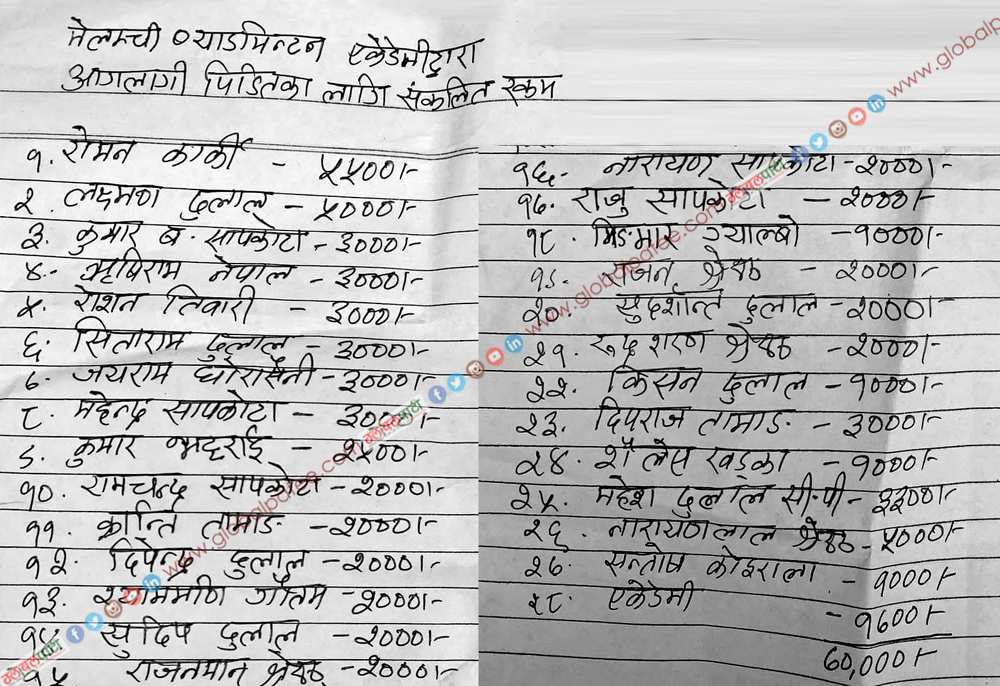 मेलम्ची ब्याडमिन्टन एकेडेमीद्वारा
आगलागी पिडितका लागि संकलित रकम
१. रोमन कार्की - ५५००।-
२. लक्ष्मण दुलाल - ५०००।-
३. कुमार ब. सापकोटा - ३०००।-
४.- ऋषिराम नेपाल - ३०००।-
५. रोशन तिवारी - ३०००।-
६. सिताराम दुलाल - ३०००।-
७. जयराम घोरासैनी - ३०००।-
८. महेन्द्र सापकोटा - ३०००।-
९. कुमार भट्टराई - २५००।-
१०. रामचन्द्र सापकोटा - २०००।-
११. क्रान्ति तामाङ - २०००।-
१२. दिपेन्द्र दुलाल - २०००।-
१३. श्याममणि गौतम - २०००।-
१४. सुदिप दुलाल - २०००।-
१५ राजनमान श्रेष्ठ - २०००।-
१६.- नारायण सापकोटा - २०००।-
१७. राजु सापकोटा - २०००।-
१८. मिङमार ग्याल्बो - १०००।-
१९. राजन श्रेष्ठ - २०००।-
२०. सुदर्शान्त दुलाल - २०००।
२१. रूद्र शरण श्रेष्ठ - २०००।-
२२. किसन दुलाल - १०००।-
२३. दिपराज तामाङ - ३०००।-
२४. शैलेस खड्का - १०००।-
२५. महेश दुलाल सी.पी - ३३००।-
२६. नारायणलाल श्रेष्ठ - ५०००।-
२७. सन्तोष कोइराला - १०००।-
२८. एकेडेमी - १७००।-
७०,०००।-
www.globalpatee.com
ग्लोबलपाटी